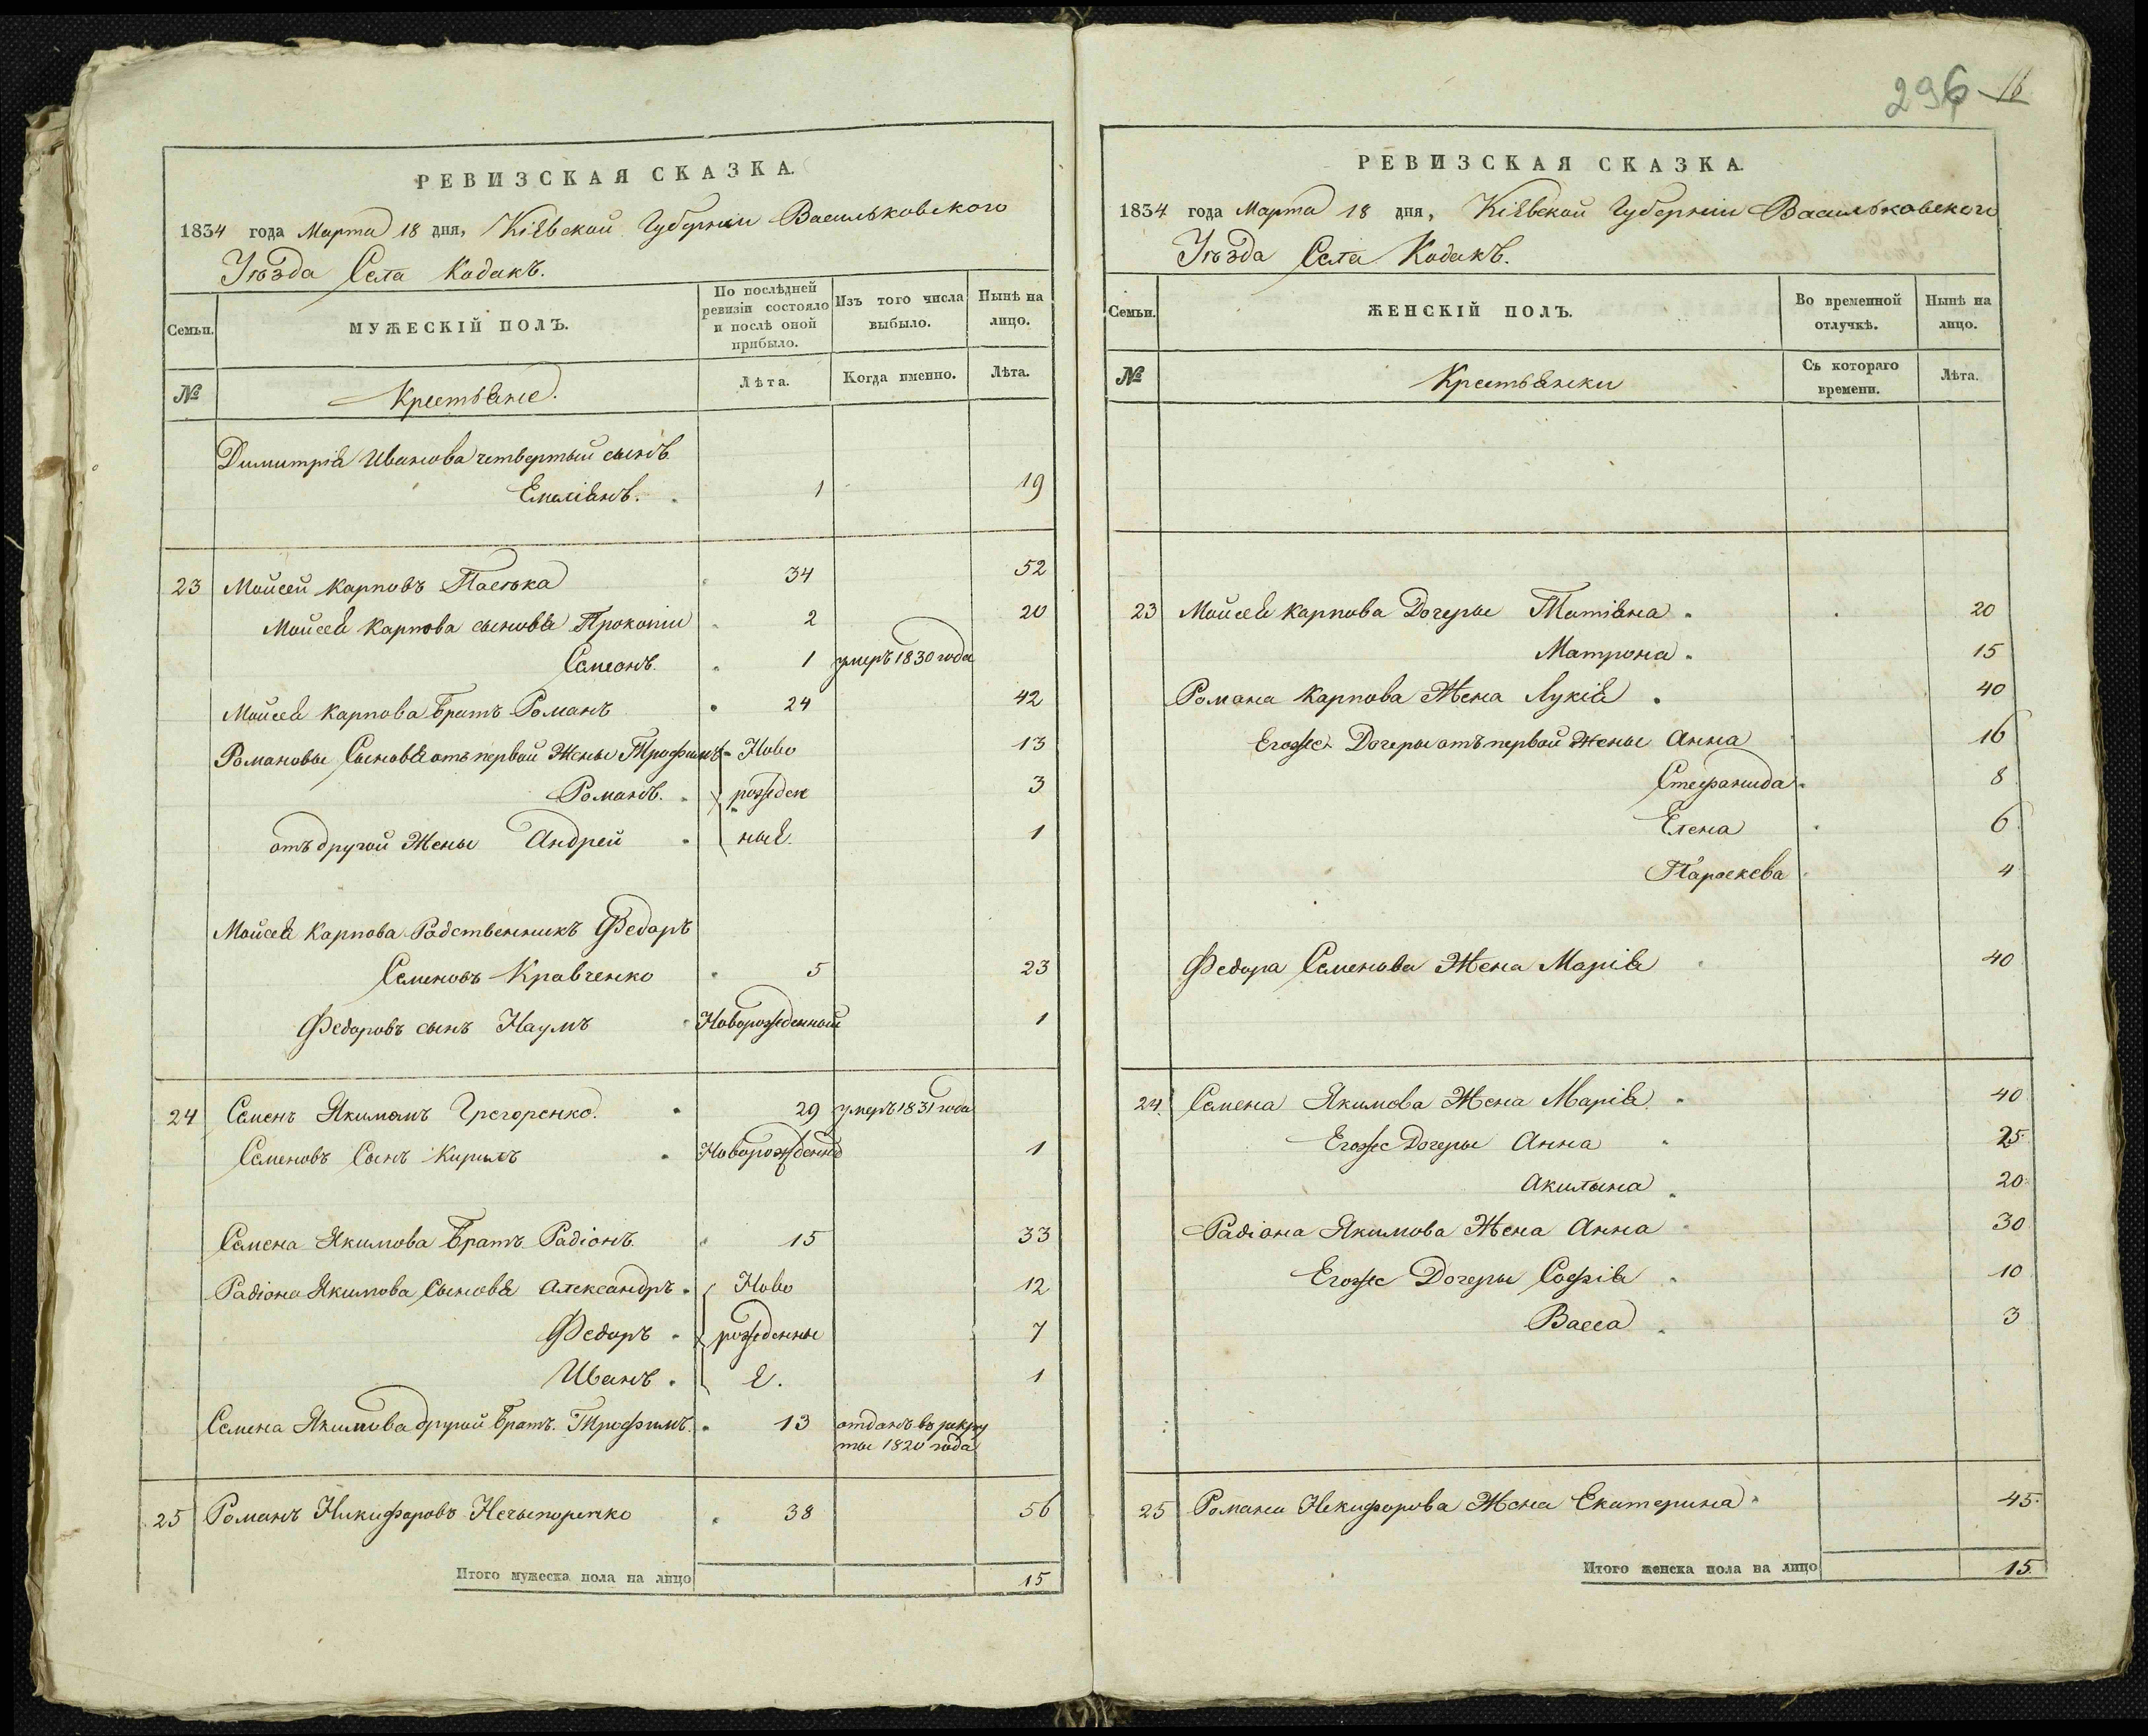 296 16
РЕВИЗСКАЯ СКАЗКА.
1834 года Марта 18 дня, Кіевской Губерніи Васильковского
Уѣзда Села Кодакъ.
Семьи.
МУЖЕСКІЙ ПОЛЪ.
По послѣдней ревизіи состояло и послѣ оной прибыло.
Изъ того числа выбыло.
Нынѣ на лицо.
№
Крестьяне.
Лѣта.
Когда именно.
Лѣта.
Димитрія Иванова четвертый сынъ
Емеліянъ. 1 19
23 Мойсей Карповъ Пастька 34 52
Мойсея Карпова сыновья Прокопій 2 20
Семеонъ. 1 умеръ 1830 года
Мойсея Карпова Братъ Романъ 24 42
Романовы Сыновья отъ первой Жены Трофимъ Ново 13
Романъ. рожден 3
отъ другой Жены Андрей ные. 1
Мойсея Карпова Родственникъ Федоръ
Семеновъ Кравченко 5 23
Федоровъ сынъ Наумъ Новорожденный 1
24 Семенъ Якимовъ Грегоренко. 29 умеръ 1831 года
Семеновъ Сынъ Кирылъ Новорожденны 1
Семена Якимова Братъ Радіонъ 15 33
Радіона Якимова Сыновья Александръ Ново 12
Федоръ рожденны 7
Иванъ е. 1
Семена Якимова другой Братъ. Трофимъ. 13 отданъ въ рекру
ты 1820 года
25 Романъ Никифоровъ Нечыпоренко 38 56
Итого мужеска пола на лицо 15
РЕВИЗСКАЯ СКАЗКА.
1834 года Марта 18 дня, Кіевской Губерніи Васильковского
Уѣзда Села Кодакъ.
Семьи.
ЖЕНСКІЙ ПОЛЪ.
Во временной отлучкѣ.
Нынѣ на лицо.
№
Крестьянки
Съ котораго времени.
Лѣта.
23 Мойсея Карпова Дочеры Татіяна 20
Матрона 15
Романа Карпова Жена Лукія 40
Егоже Дочеры отъ первой Жены Анна 16
Стефанида 8
Елена 6
Параскева 4
Федора Семенова Жена Марія 40
24 Семена Якимова Жена Марія 40
Егоже Дочеры Анна 25
Акилына 20
Радіона Якимова Жена Анна 30
Егоже Дочеры Софія 10
Васса 3
25 Романа Никифорова Жена Екатерина 45
Итого женска пола на лицо 15